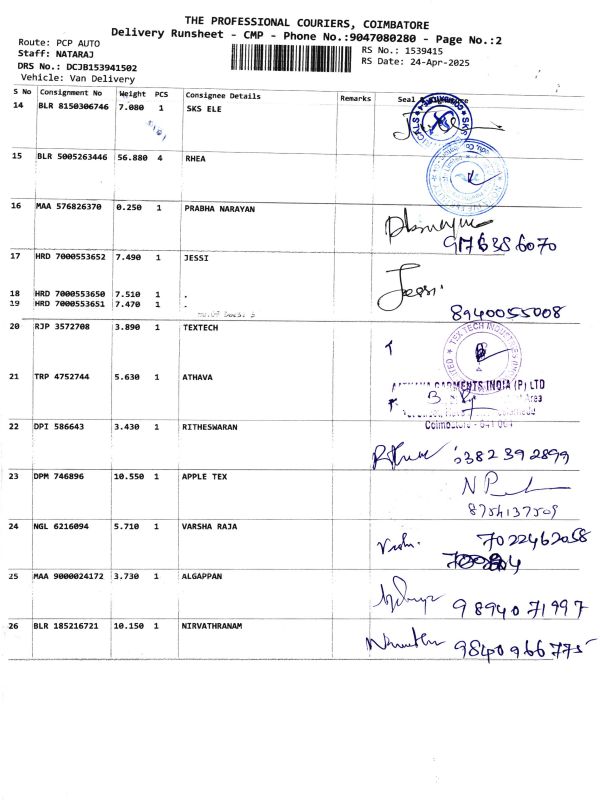 THE PROFESSIONAL COURIERS, COIMBATORE
Delivery Runsheet - CMP - Phone No.:9047080280 - Page No.:2
Route: PCP AUTO
Staff: NATARAJ
DRS No.: DCJB153941502
Vehicle: Van Delivery
RS No.: 1539415
RS Date: 24-Apr-2025
S No Consignment No Weight PCS Consignee Details Remarks Seal &
14 BLR 8150306746 7.080 1 SKS ELE
15 BLR 5005263446 56.880 4 RHEA
16 MAA 576826370 0.250 1 PRABHA NARAYAN
9176386070
17 HRD 7000553652 7.490 1 JESSI
Jessi.
18 HRD 7000553650 7.510 1 .
19 HRD 7000553651 7.470 1 .
8940055008
20 RJP 3572708 3.890 1 TEXTECH
TEX TECH INDUSTRIES
21 TRP 4752744 5.630 1 ATHAVA
GARMENTS INDIA (P) LTD
Area
22 DPI 586643 3.430 1 RITHESWARAN
23 DPM 746896 10.550 1 APPLE TEX
8754137509
24 NGL 6216094 5.710 1 VARSHA RAJA
7022462058
25 MAA 9000024172 3.730 1 ALGAPPAN
9894071997
26 BLR 185216721 10.150 1 NIRVATHRANAM
9840966775